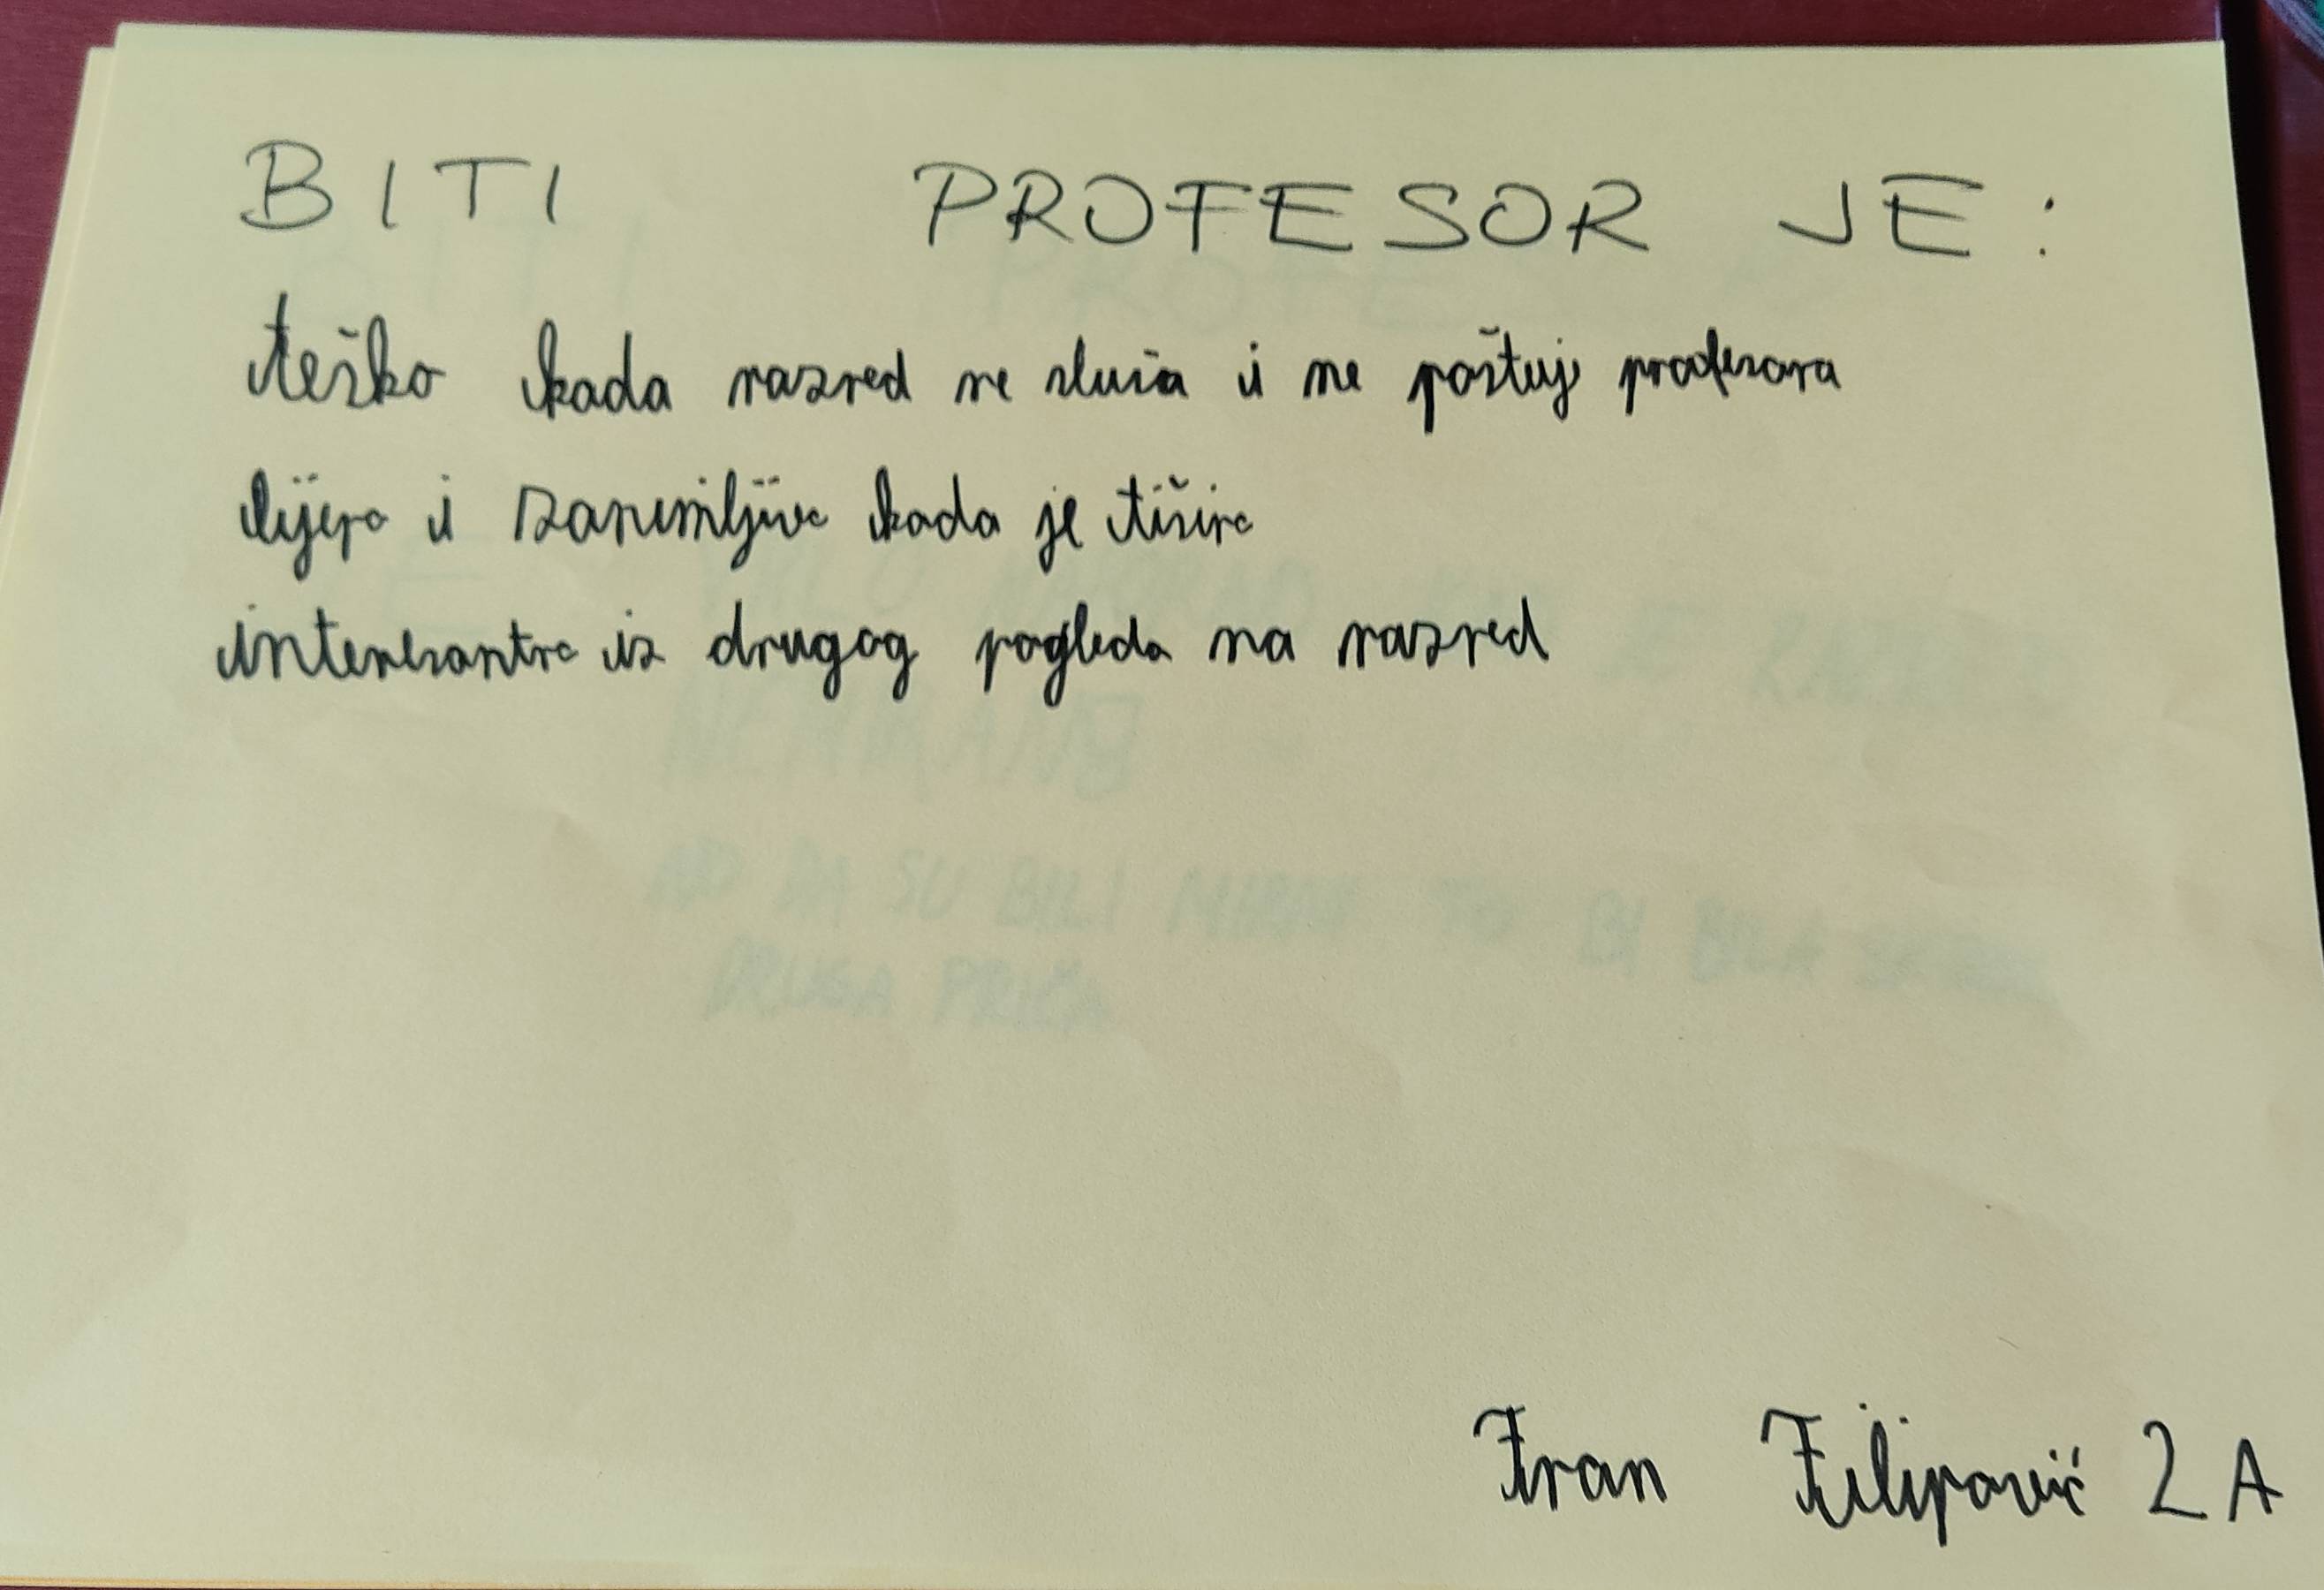 BITI PROFESOR JE:
teško kada razred ne sluša i ne poštuje profesora
lijepo i zanimljivo kada je tišina
interesantno iz drugog pogleda na razred
NO DA SU BILI TO BI BILA
DRUGA PRIČA
Fran Filipović 2A